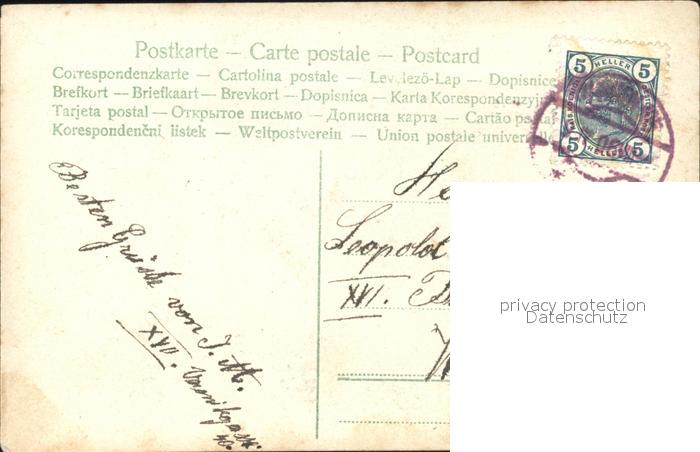 Postkarte – Carte postale – Postcard
Correspondenzkarte – Cartolina postale – Levelező-Lap – Dopisnice
Brefkort – Briefkaart – Brevkort – Dopisnica – Karta Korespondenzyjn
Tarjeta postal – Открытое письмо – Дописна карта – Cartão pos
Korespondenční listek – Weltpostverein – Union postale universelle
5 HELLER 5
5 HELLER 5
He
Leopold
XVI.
Besten Grüße von J. M.
XVII.
privacy protection
Datenschutz